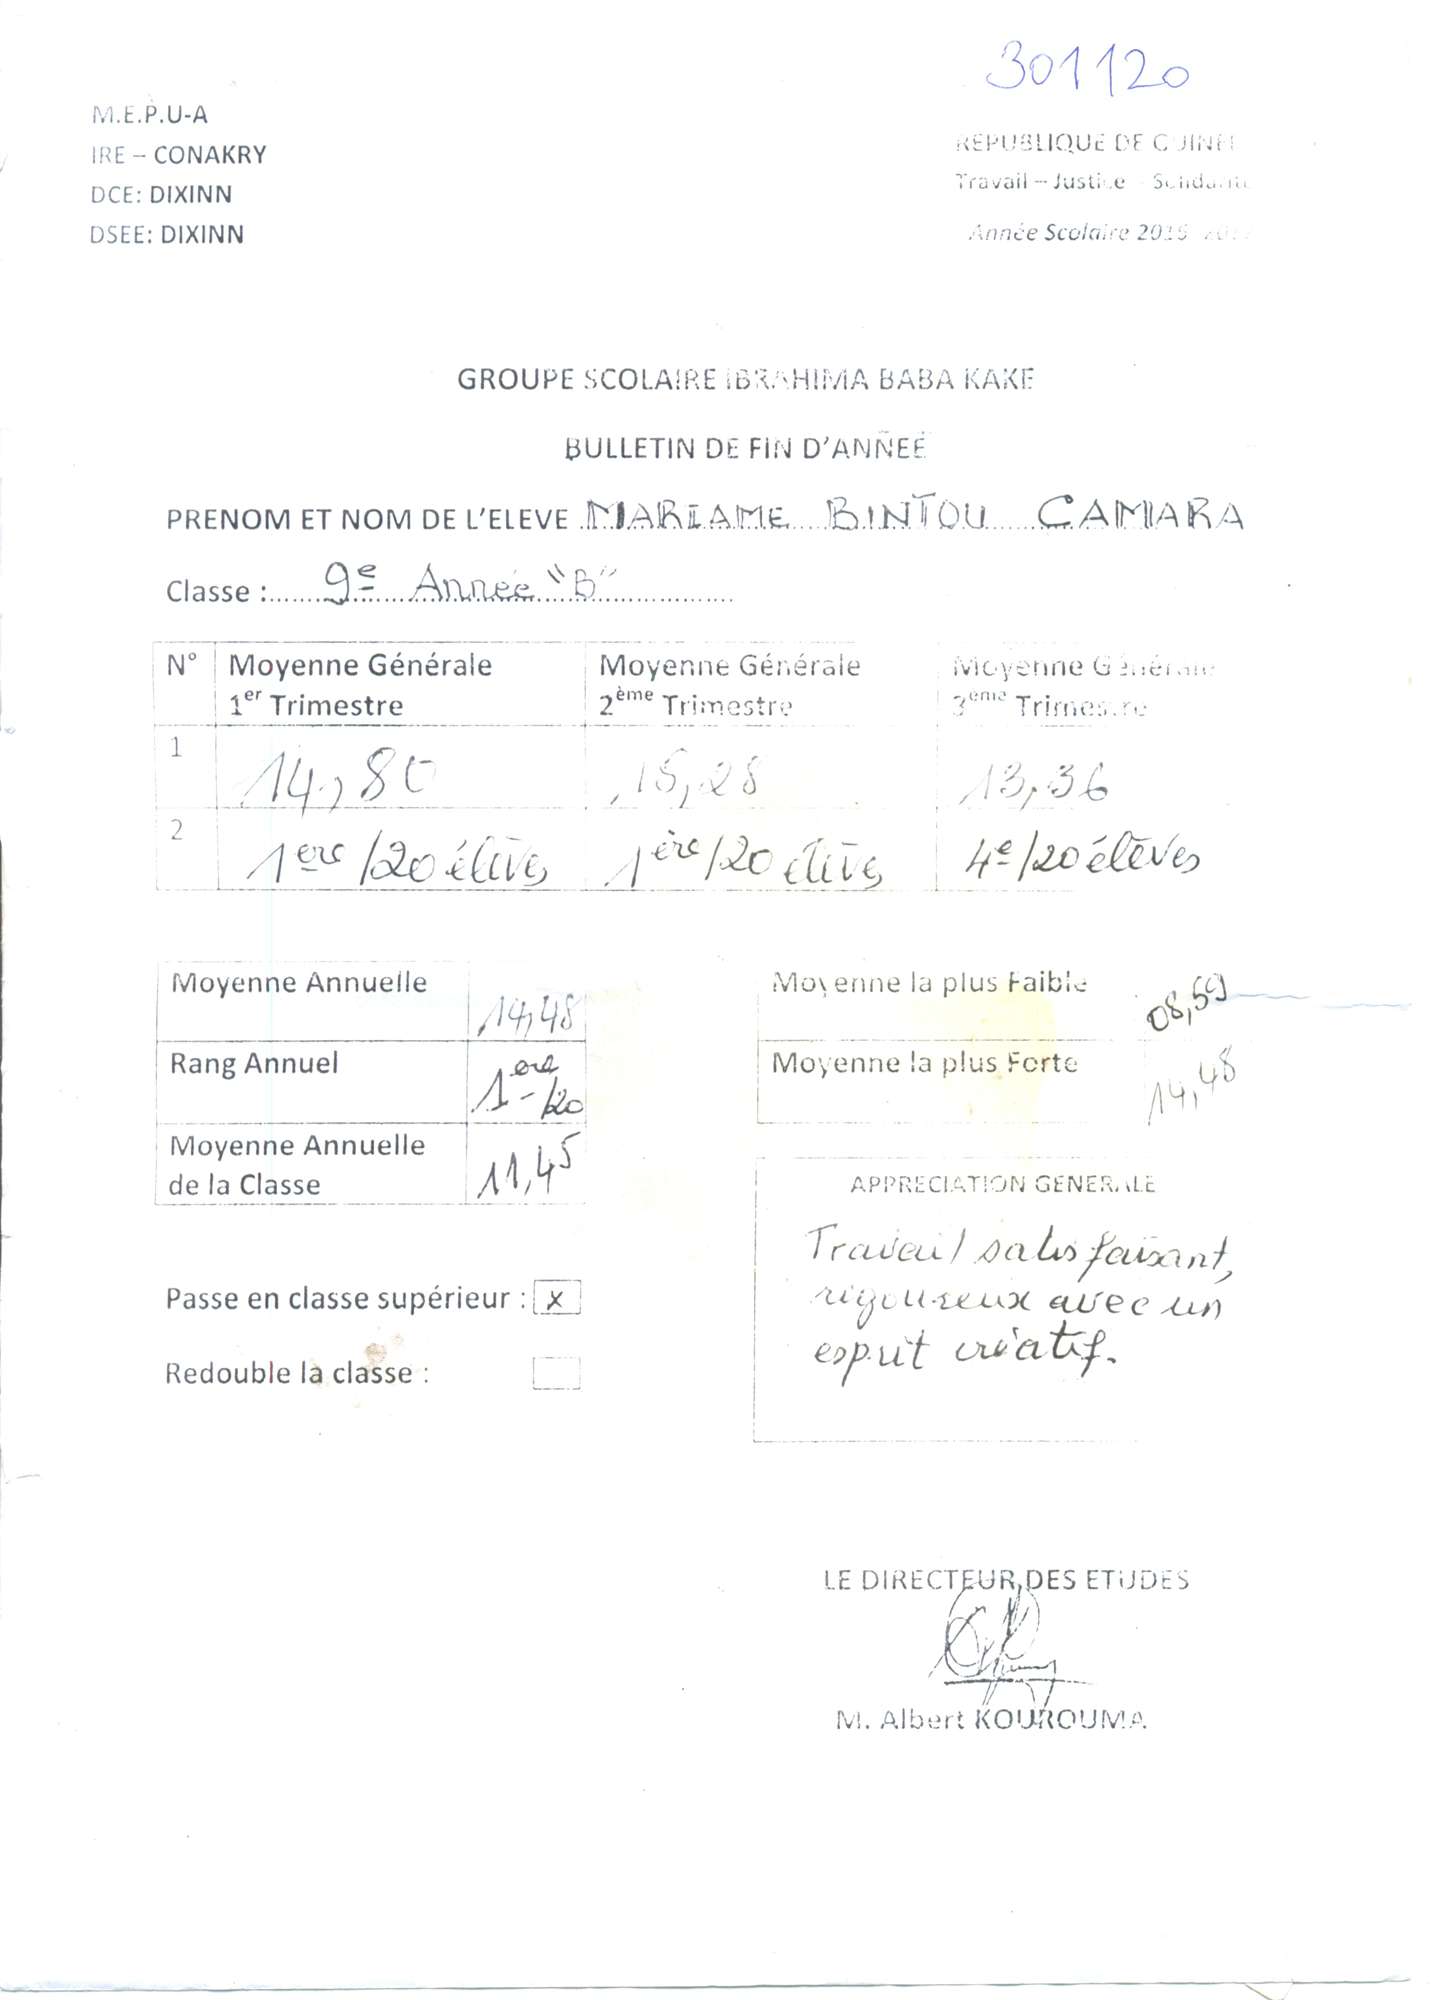 301120
M.E.P.U-A
IRE – CONAKRY
DCE: DIXINN
DSEE: DIXINN
REPUBLIQUE DE GUINEE
Travail – Justice – Solidarité
Année Scolaire
GROUPE SCOLAIRE IBRAHIMA BABA KAKE
BULLETIN DE FIN D'ANNEE
PRENOM ET NOM DE L'ELEVE MARIAME BINTOU CAMARA
Classe : 9e Année "B"
N° Moyenne Générale 1er Trimestre Moyenne Générale 2ème Trimestre Moyenne Générale 3ème Trimestre
1 14,80 15,28 13,36
2 1ère/20 élèves 1ère/20 élèves 4e/20 élèves
Moyenne Annuelle 14,48
Rang Annuel 1ère/20
Moyenne Annuelle de la Classe 11,45
Moyenne la plus Faible 08,59
Moyenne la plus Forte 14,48
APPRECIATION GENERALE
Travail satisfaisant,
rigoureux avec un
esprit créatif.
Passe en classe supérieur : x
Redouble la classe :
LE DIRECTEUR DES ETUDES
M. Albert KOUROUMA